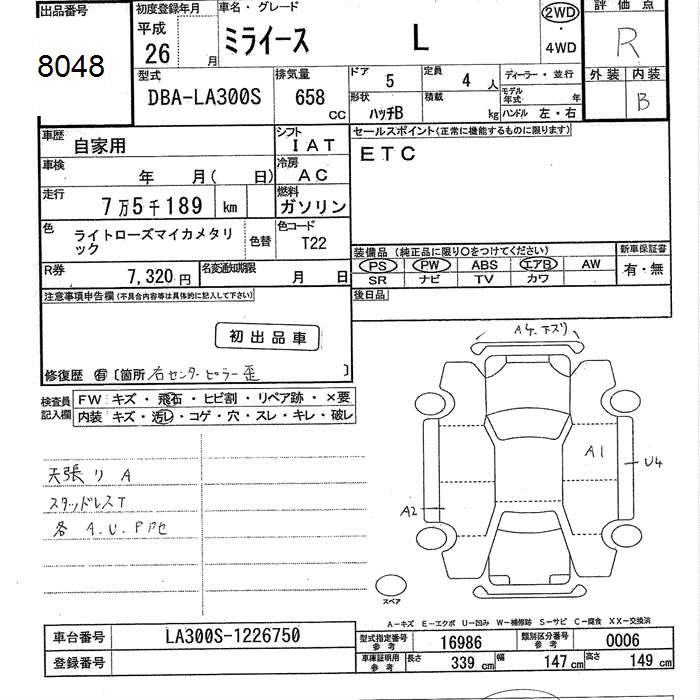 出品番号
8048
初度登録年月
平成
26 月
車名・グレード
ミライース L
2WD
・
4WD
評価点
R
外装 内装
B
型式
DBA-LA300S
排気量
658 CC
ドア 5
定員 4 人
形状
ハッチB
積載 kg
ディーラー・並行
モデル年式 年
ハンドル 左・右
車歴
自家用
シフト
IAT
車検
年 月( 日)
冷房
AC
走行
7万5千189 km
燃料
ガソリン
色
ライトローズマイカメタリ
ック
色替
色コード
T22
R券
7,320円
名変通知期限
月 日
セールスポイント(正常に機能するものに限ります)
ETC
装備品(純正品に限り○をつけてください)
PS PW ABS エアB AW
SR ナビ TV カワ
新車保証書
有・無
後日品
注意事項申告欄(不具合内容等は具体的に記入して下さい)
初出品車
修復歴 有〔箇所 右センターピラー歪 〕
検査員
記入欄
FW キズ・飛石・ヒビ割・リペア跡・×要
内装 キズ・汚レ・コゲ・穴・スレ・キレ・破レ
天張リ A
スタッドレスT
各 A.U.P
A4.下ズリ
A1
U4
A2
スペア
A-キズ E-エクボ U-凹み W-補修跡 S-サビ C-腐食 XX-交換済
車台番号 LA300S-1226750
登録番号
型式指定番号
参考
16986
類別区分番号
参考
0006
車庫証明用
参考
長さ 339 cm
幅 147 cm
高さ 149 cm